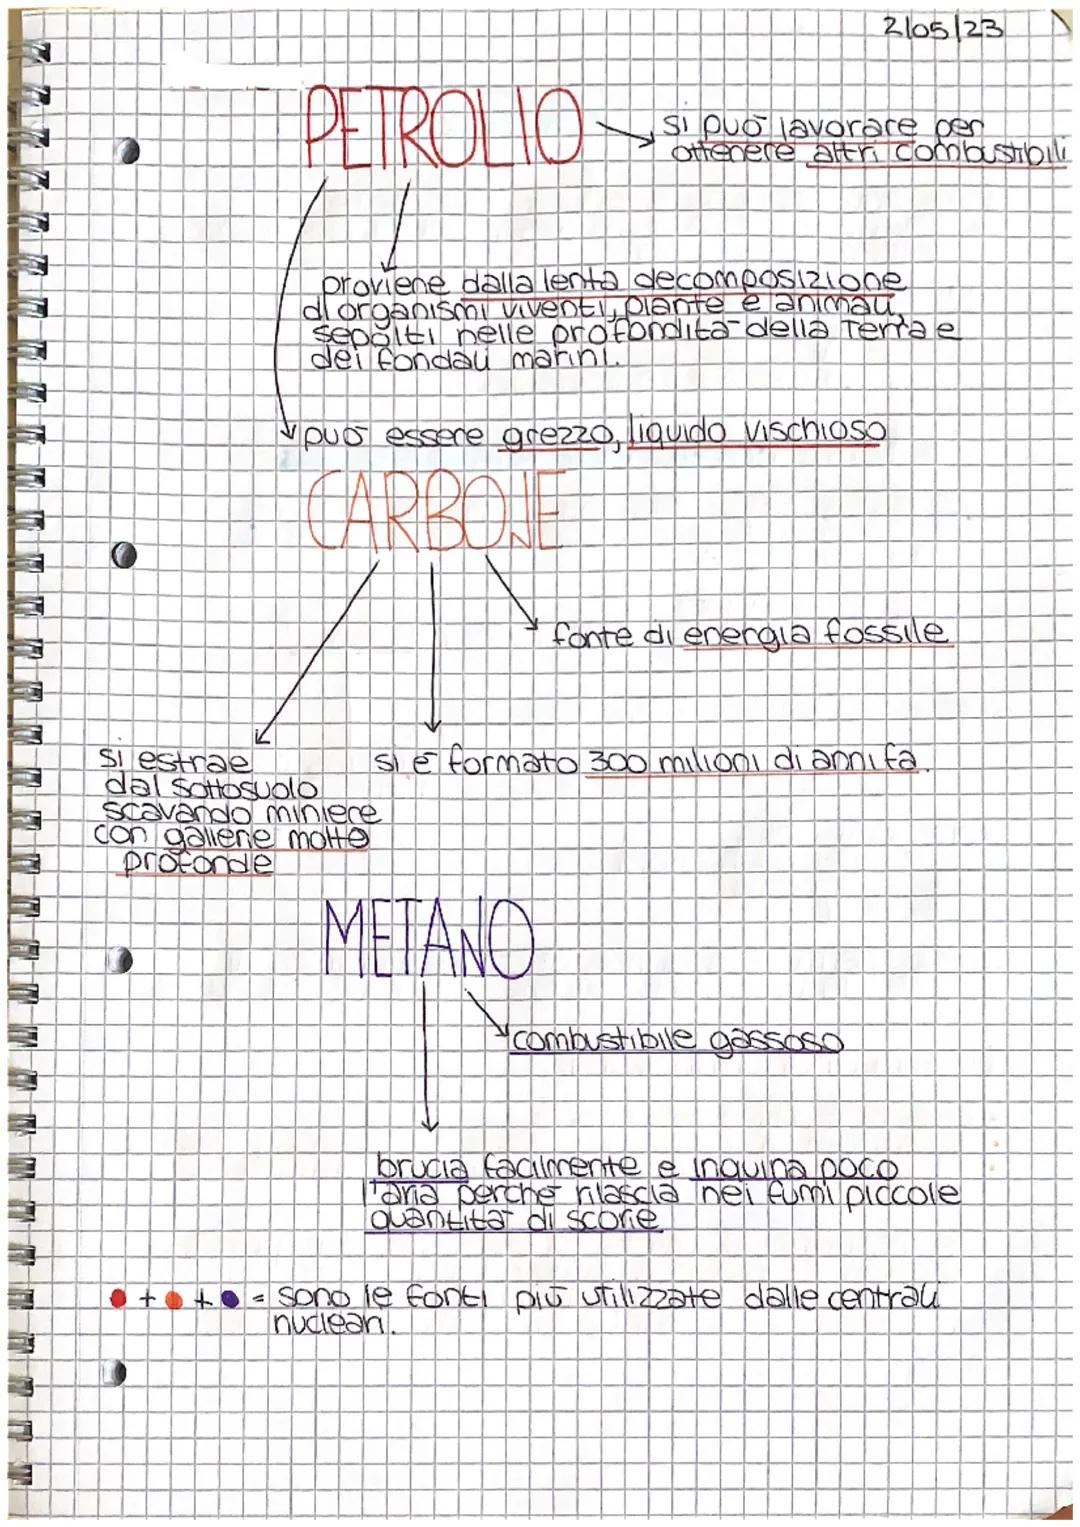 2/05/23
PETROLIO
si può lavorare per
ottenere altri combustibili
proviene dalla lenta decomposizione
di organismi viventi, piante e animali,
sepolti nelle profondità della Terra e
dei fondali marini.
può essere grezzo, liquido vischioso
CARBONE
fonte di energia fossile
si è formato 300 milioni di anni fa.
si estrae
dal sottosuolo
scavando miniere
con gallerie molto
profonde
METANO
combustibile gassoso
brucia facilmente e inquina poco
l'aria perché rilascia nei fumi piccole
quantità di scorie
+ + = sono le fonti più utilizzate dalle centrali
nucleari.